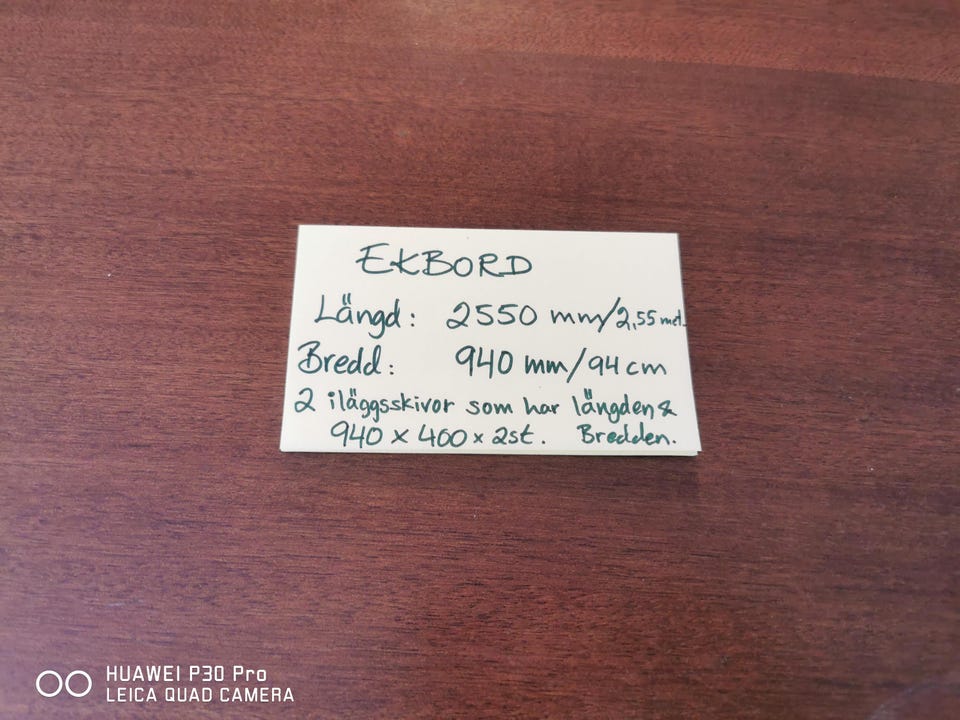 EKBORD
Längd: 2550 mm/2,55 met.
Bredd: 940 mm/94 cm
2 iläggsskivor som har längden &
940 x 400 x 2st. Bredden.
HUAWEI P30 Pro
LEICA QUAD CAMERA